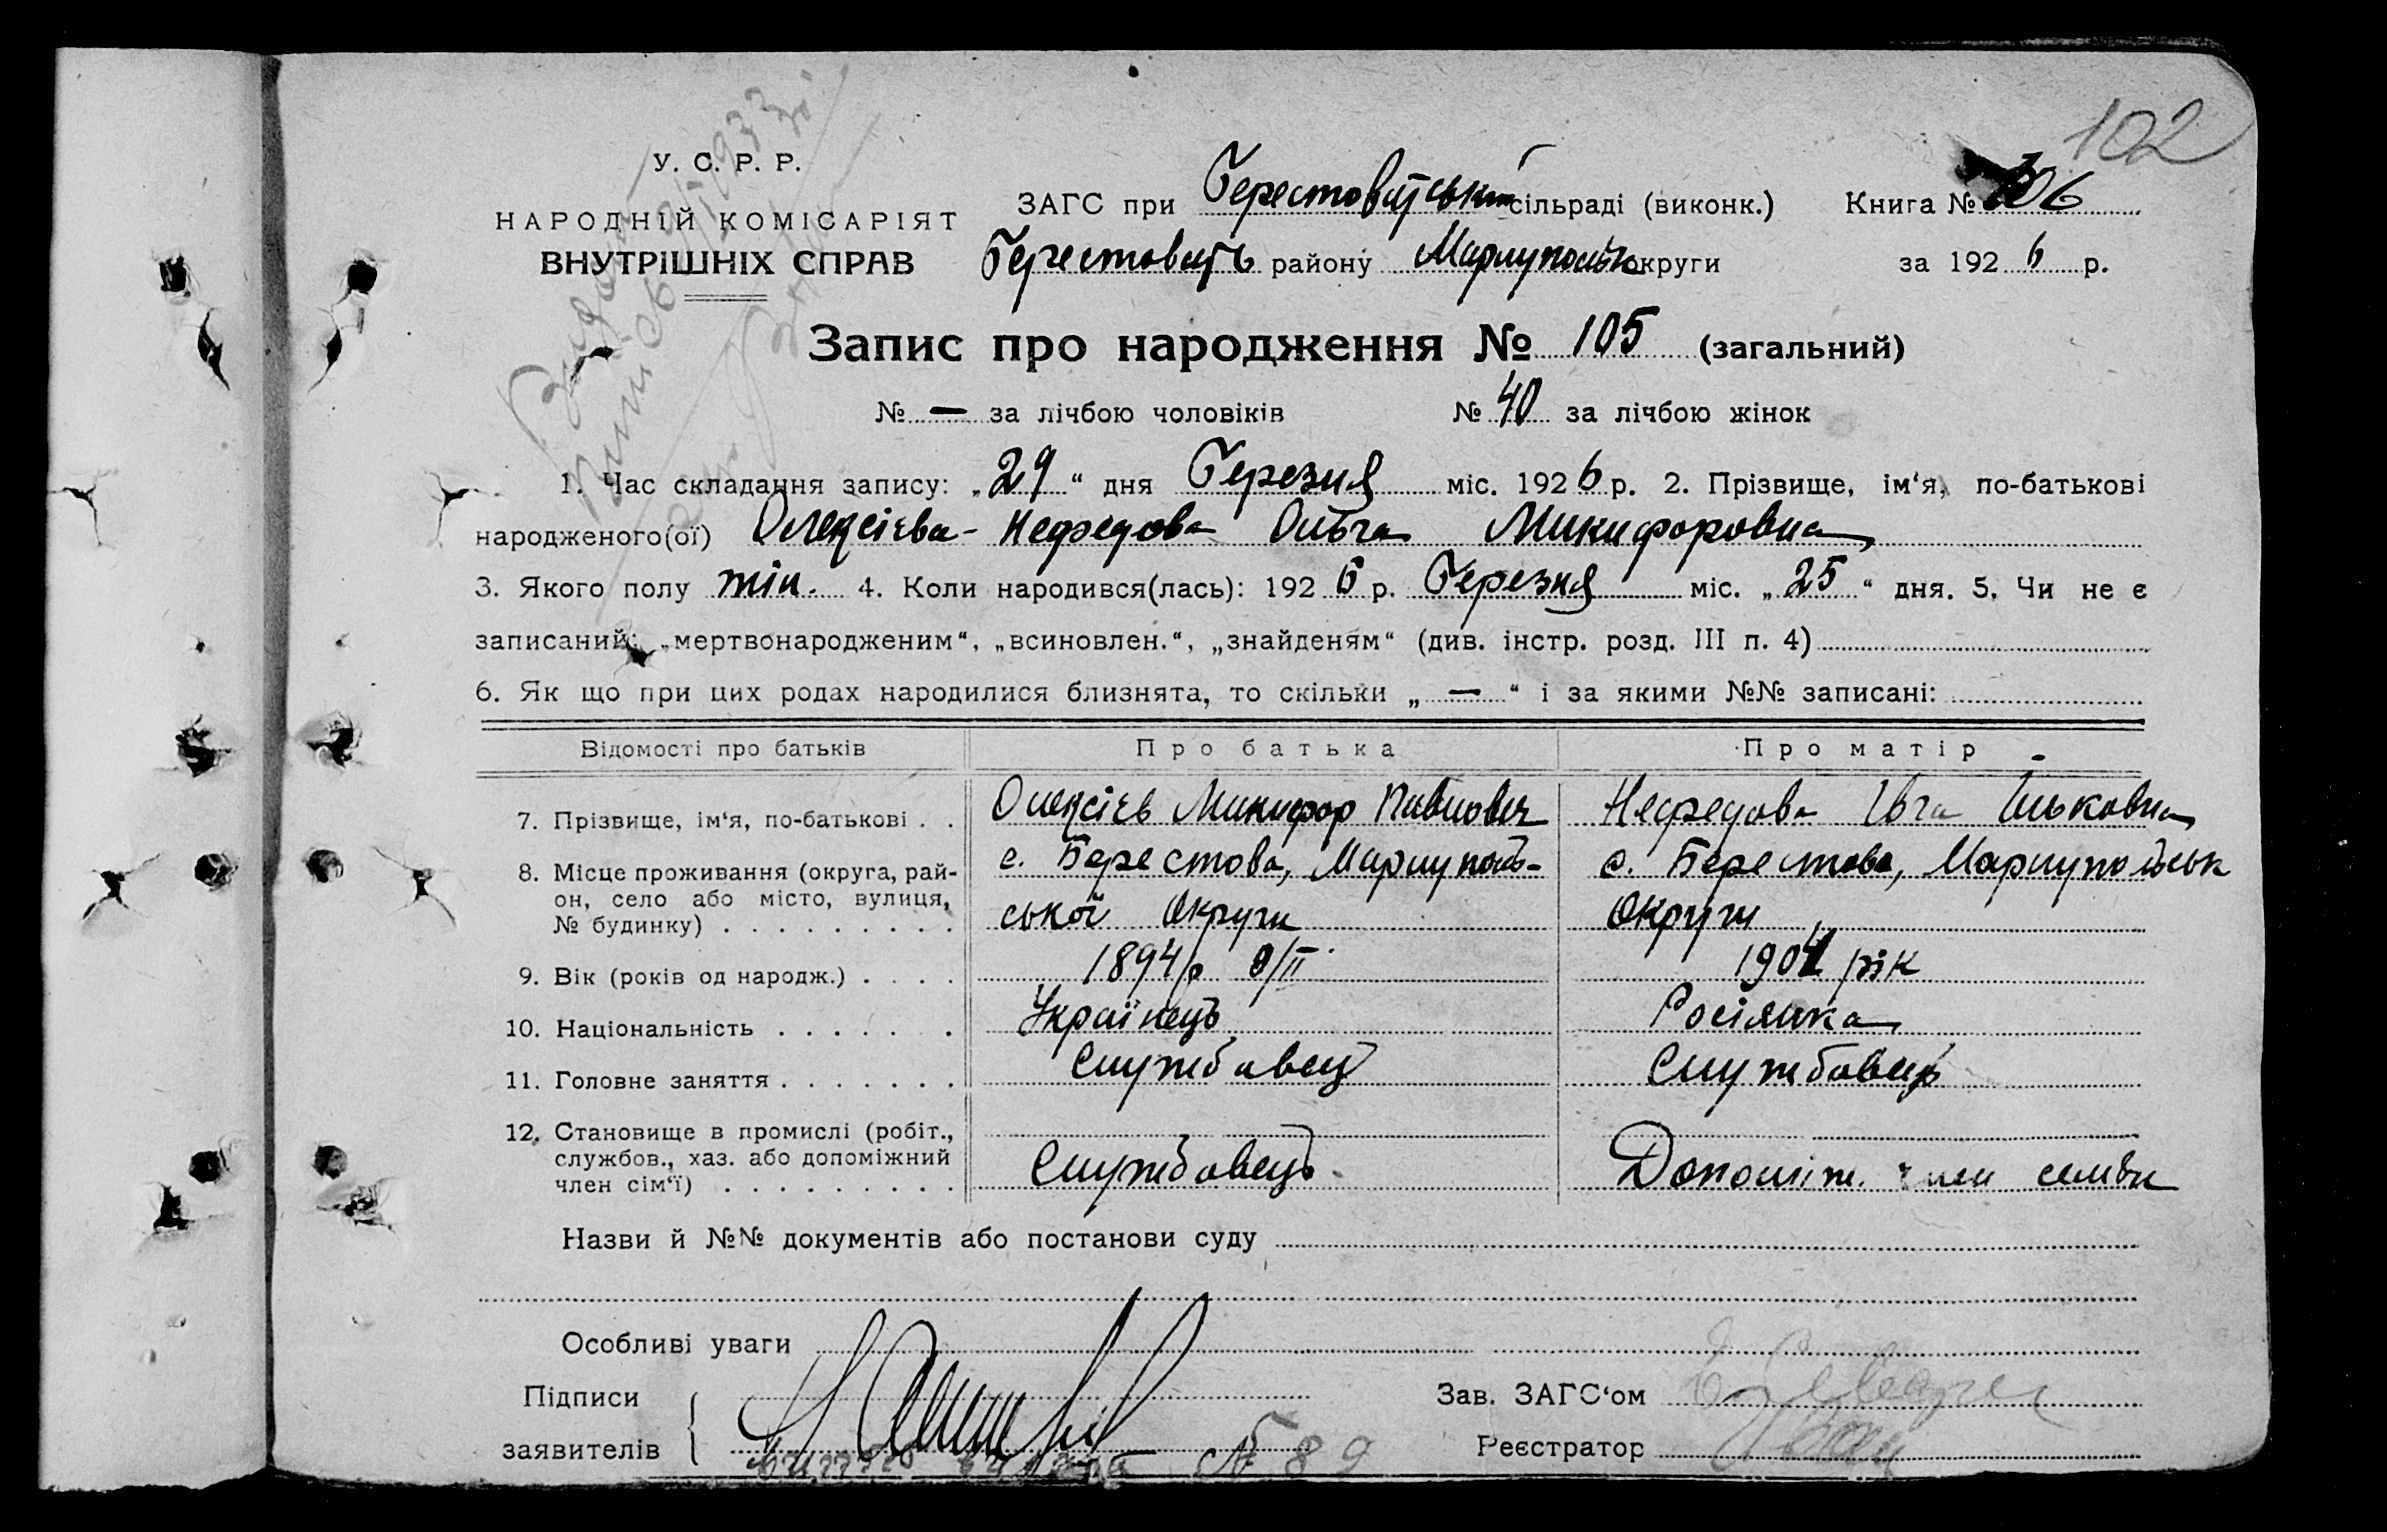 102
У. С. Р. Р.
НАРОДНІЙ КОМІСАРІЯТ
ВНУТРІШНІХ СПРАВ
ЗАГС при Берестоватській сільраді (виконк.) Книга №
Берестоватъ району Мариупольск округи за 1926 р.
Запис про народження № 105 (загальний)
№ — за лічбою чоловіків № 40 за лічбою жінок
1. Час складання запису: „29“ дня Березня міс. 1926 р. 2. Прізвище, ім‘я, по-батькові
народженого(ої) Олексієва-Нефедова Ольга Микифоровна
3. Якого полу жін. 4. Коли народився(лась): 1926 р. Березня міс. „25“ дня. 5. Чи не є
записаний: „мертвонародженим“, „всиновлен.“, „знайденям“ (див. інстр. розд. III п. 4)
6. Як що при цих родах народилися близнята, то скільки „—“ і за якими №№ записані:
Відомості про батьків Про батька Про матір
7. Прізвище, ім‘я, по-батькові . . Олексієв Микифор Павлович Нефедова Ївга Ільковна
8. Місце проживання (округа, рай- с. Берестова, Мариуполь- с. Берестова, Мариупольськ
он, село або місто, вулиця, ської Округи Округи
№ будинку)
9. Вік (років од народж.) 1894 р /II 1904 рік
10. Національність Українець Росіянка
11. Головне заняття Службовец Службовец
12. Становище в промислі (робіт.,
службов., хаз. або допоміжний Службовець Допоміж. член семьи
член сім‘ї)
Назви й №№ документів або постанови суду
Особливі уваги
Підписи Зав. ЗАГС‘ом
заявителів Реєстратор
№ 89